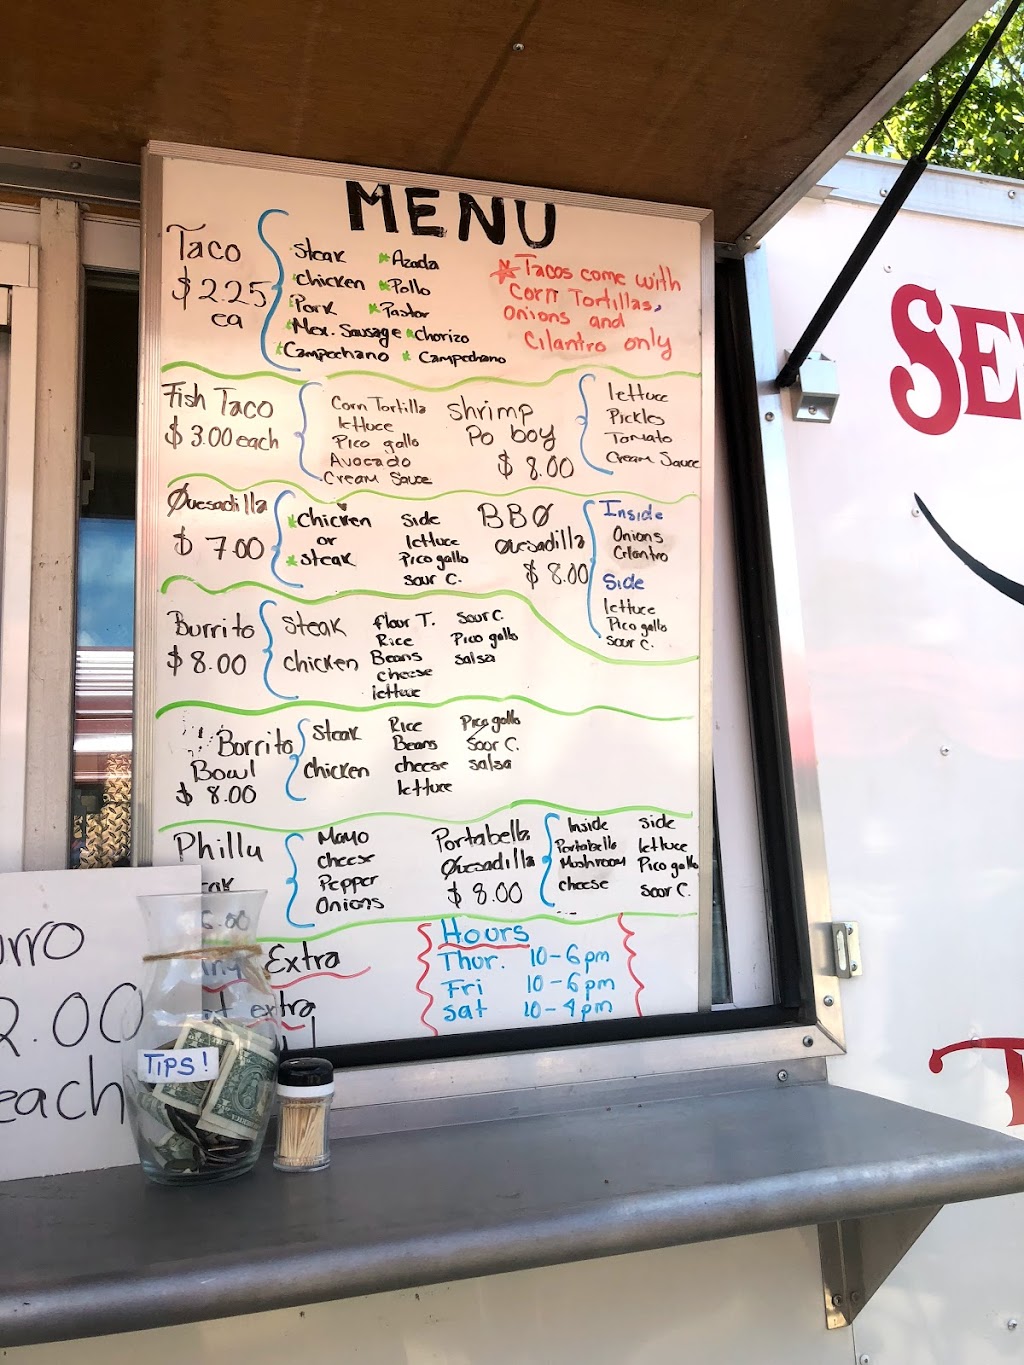 MENU
Taco
$2.25
ea
Steak
Chicken
Pork
Mex. Sausage
Campechano
Azada
Pollo
Pastor
Chorizo
Campechano
Tacos come with
Corn Tortillas,
Onions and
Cilantro only
Fish Taco
$3.00 each
Corn Tortilla
lettuce
Pico gallo
Avocado
Cream Sauce
Shrimp
Po boy
$8.00
lettuce
Pickles
Tomato
Cream Sauce
Quesadilla
$7.00
Chicken
or
Steak
Side
lettuce
Pico gallo
Sour C.
BBQ
Quesadilla
$8.00
Inside
Onions
Cilantro
Side
lettuce
Pico gallo
Sour C.
Burrito
$8.00
Steak
Chicken
flour T.
Rice
Beans
cheese
lettuce
Sour C.
Pico gallo
Salsa
Borrito
Bowl
$8.00
Steak
Chicken
Rice
Beans
cheese
lettuce
Pico gallo
Soor C.
Salsa
Philly
Mayo
cheese
Pepper
Onions
Portabella
Quesadilla
$8.00
Inside
Portabella
Mushroom
cheese
Side
lettuce
Pico gallo
Soor C.
Extra
extra
Hours
Thur. 10-6pm
Fri 10-6pm
Sat 10-4pm
2.00
each
TIPS!